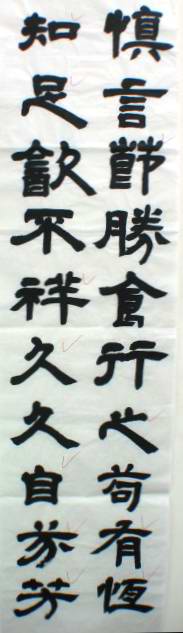 慎言節勝食行之苟有恆
知足飲不祥久久自芬芳